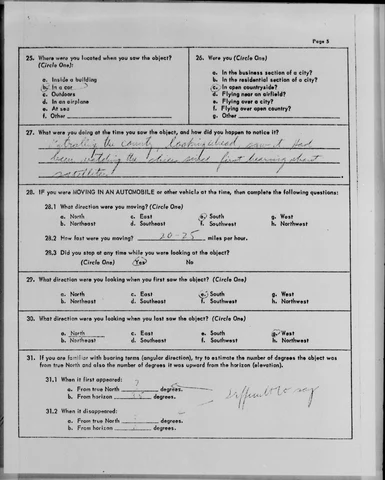 Page 5
25. Where were you located when you saw the object?
(Circle One):
a. Inside a building
b. In a car
c. Outdoors
d. In an airplane
e. At sea
f. Other
26. Were you (Circle One)
a. In the business section of a city?
b. In the residential section of a city?
c. In open countryside?
d. Flying near an airfield?
e. Flying over a city?
f. Flying over open country?
g. Other
27. What were you doing at the time you saw the object, and how did you happen to notice it?
Patroling the county, looking ahead, and had
been watching the skies since first hearing about
satellites
28. IF you were MOVING IN AN AUTOMOBILE or other vehicle at the time, then complete the following questions:
28.1 What direction were you moving? (Circle One)
a. North c. East e. South g. West
b. Northeast d. Southeast f. Southwest h. Northwest
28.2 How fast were you moving? 20-25 miles per hour.
28.3 Did you stop at any time while you were looking at the object?
(Circle One) Yes No
29. What direction were you looking when you first saw the object? (Circle One)
a. North c. East e. South g. West
b. Northeast d. Southeast f. Southwest h. Northwest
30. What direction were you looking when you last saw the object? (Circle One)
a. North c. East e. South g. West
b. Northeast d. Southeast f. Southwest h. Northwest
31. If you are familiar with bearing terms (angular direction), try to estimate the number of degrees the object was
from true North and also the number of degrees it was upward from the horizon (elevation).
31.1 When it first appeared:
a. From true North ? degrees.
b. From horizon degrees.
difficult to say
31.2 When it disappeared:
a. From true North degrees.
b. From horizon degrees.